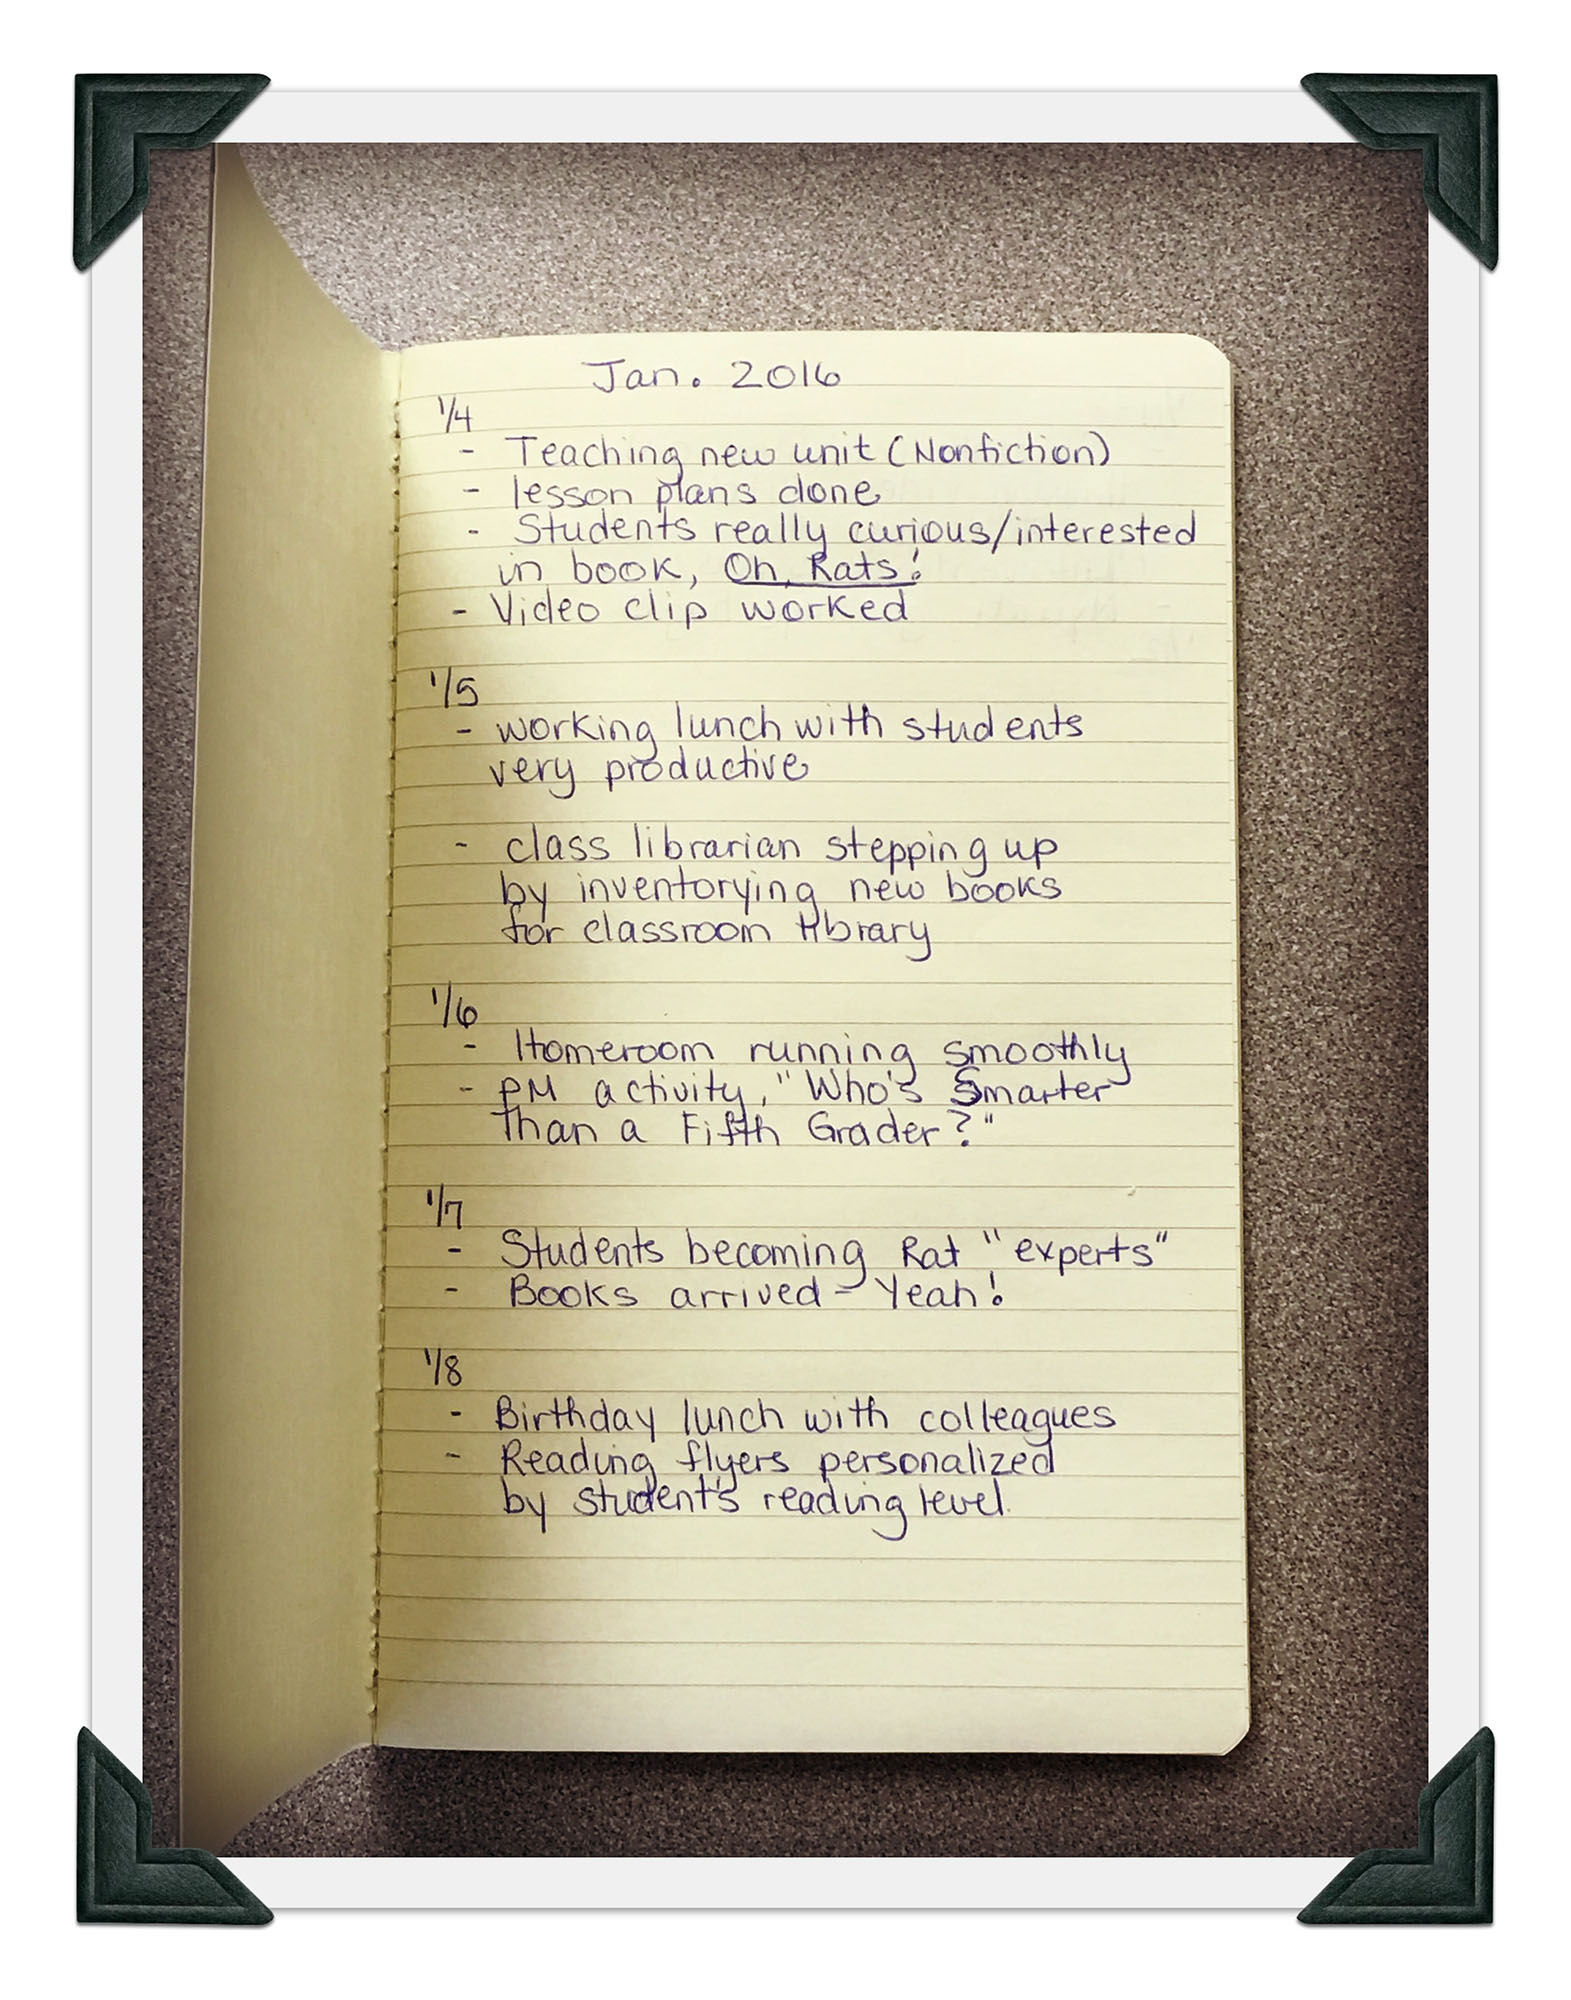 Jan. 2016
1/4
- Teaching new unit (Nonfiction)
- lesson plans done
- Students really curious/interested
in book, Oh, Rats!
- Video clip worked
1/5
- working lunch with students
very productive
- class librarian stepping up
by inventorying new books
for classroom library
1/6
- Homeroom running smoothly
- PM activity, "Who's Smarter
Than a Fifth Grader?"
1/7
- Students becoming Rat "experts"
- Books arrived - Yeah!
1/8
- Birthday lunch with colleagues
- Reading flyers personalized
by student's reading level.